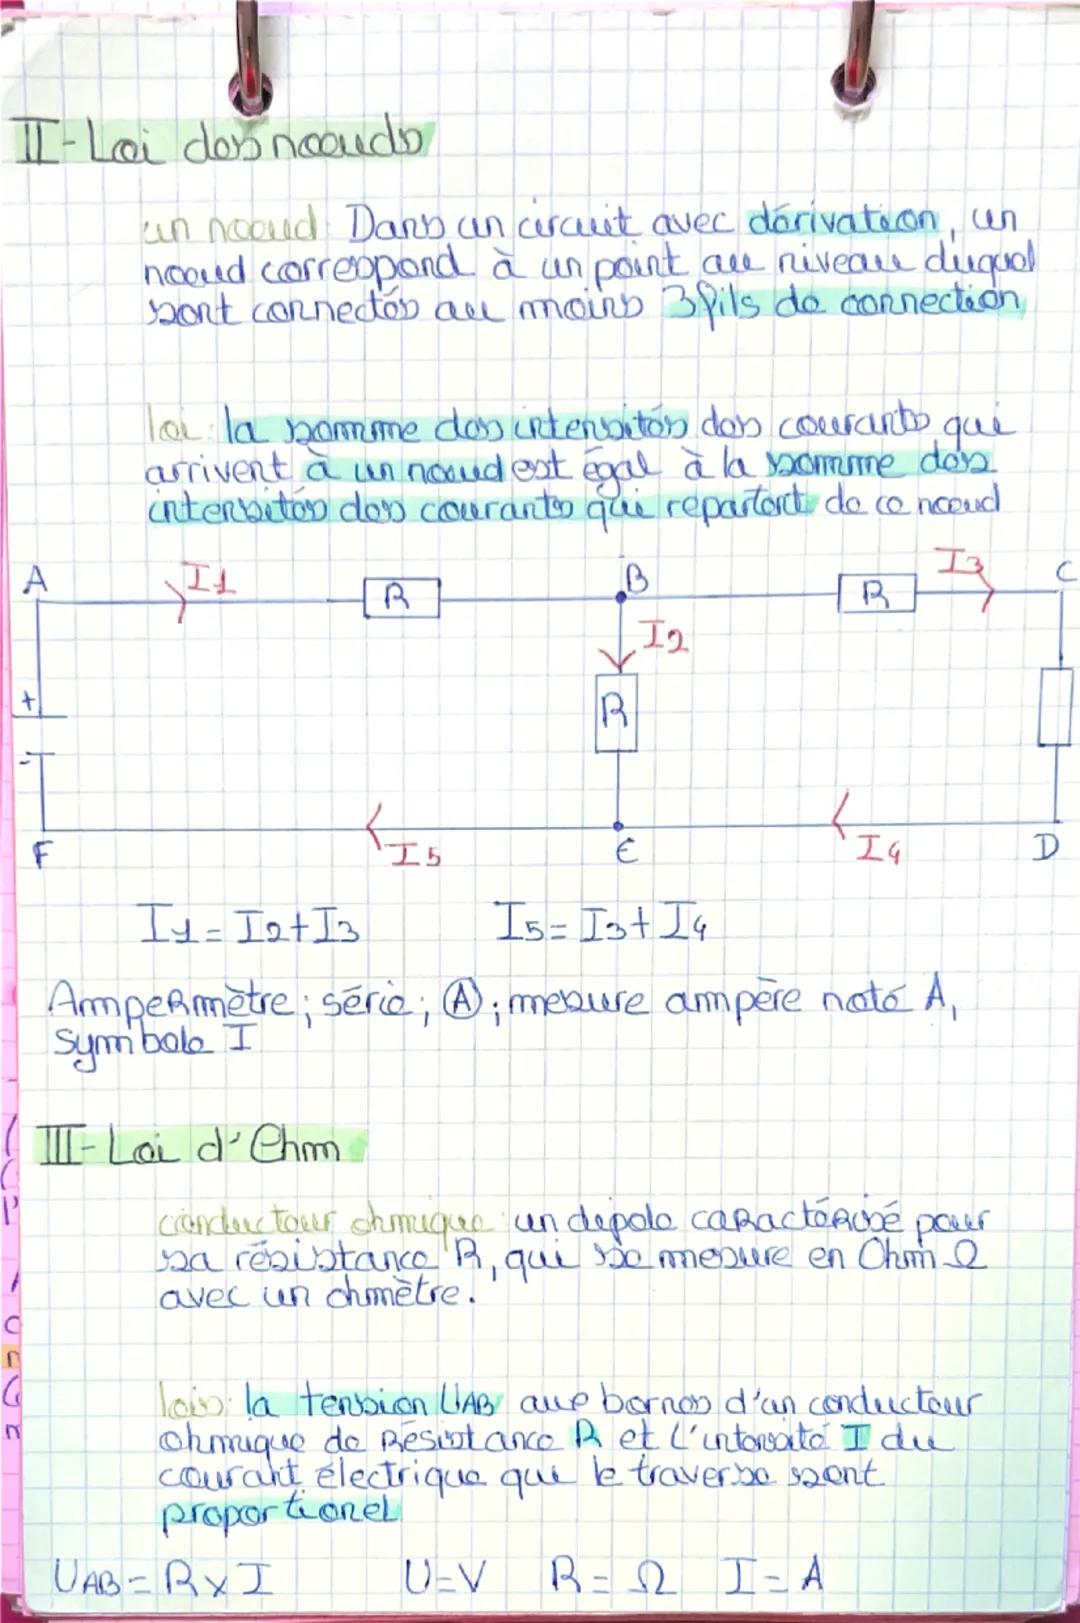 II - Loi des noeuds
un noeud: Dans un circuit avec dérivation, un
noeud correspond à un point au niveau duquel
sont connectés au moins 3 fils de connection
loi: la somme des intensités des courants qui
arrivent à un noeud est égal à la somme des
intensités des courants qui repartent de ce noeud
A I1 R B R I3 C
I2
+ R
-
F I5 E I4 D
I1 = I2 + I3 I5 = I3 + I4
AmpeRmètre; série; A; mesure ampère noté A,
symbole I
III - Loi d'Ohm
conducteur ohmique: un dipole caractérisé pour
sa résistance R, qui se mesure en Ohm Ω
avec un ohmètre.
lois: la tension UAB aux bornes d'un conducteur
ohmique de Résistance R et l'intensité I du
courant électrique qui le traverse sont
proportionel
UAB = R x I U = V R = Ω I = A